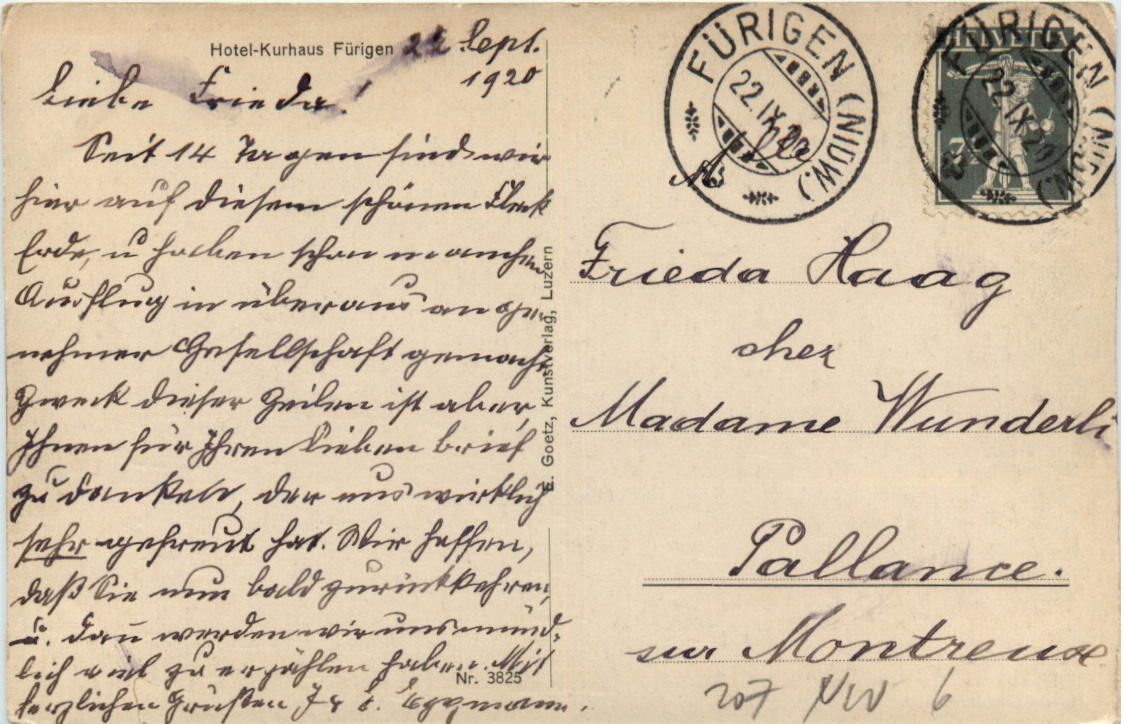 Hotel-Kurhaus Fürigen 22 Sept.
1920
Liebe Frieda!
Seit 14 Tagen sind wir
hier auf diesem schönen Fleck
Erde, u haben schon manchen
Ausflug in überaus ange-
nehmer Gesellschaft gemacht
Zweck dieser Zeilen ist aber,
Ihnen für Ihren lieben Brief
zu danken, der uns wirklich
sehr gefreut hat. Wir hoffen,
daß Sie nun bald zurückkehren,
u. dann werden wir uns münd-
lich viel zu erzählen haben. Mit
herzlichen Grüßen
Nr. 3825
E. Goetz, Kunstverlag, Luzern
FÜRIGEN (NIDW.)
22.IX.20
HELVETIA
FÜRIGEN (NIDW.)
22.IX.20
Frieda Haag
chez
Madame Wunderli
Pallance.
sur Montreux
207 NW 6